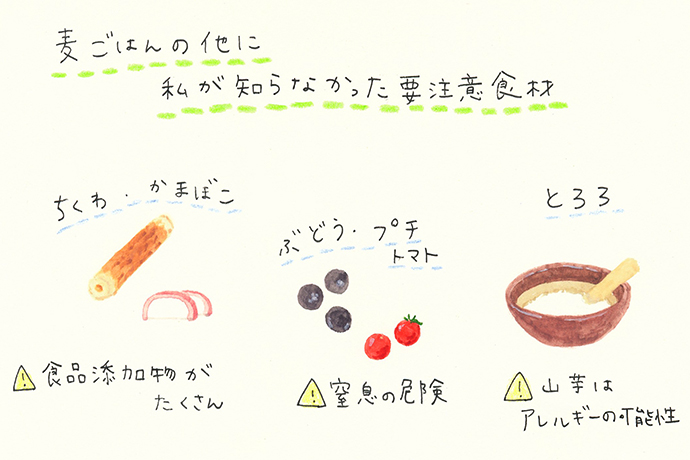 麦ごはんの他に
私が知らなかった要注意食材
ちくわ・かまぼこ
ぶどう・プチ
トマト
とろろ
食品添加物が
たくさん
窒息の危険
山芋は
アレルギーの可能性